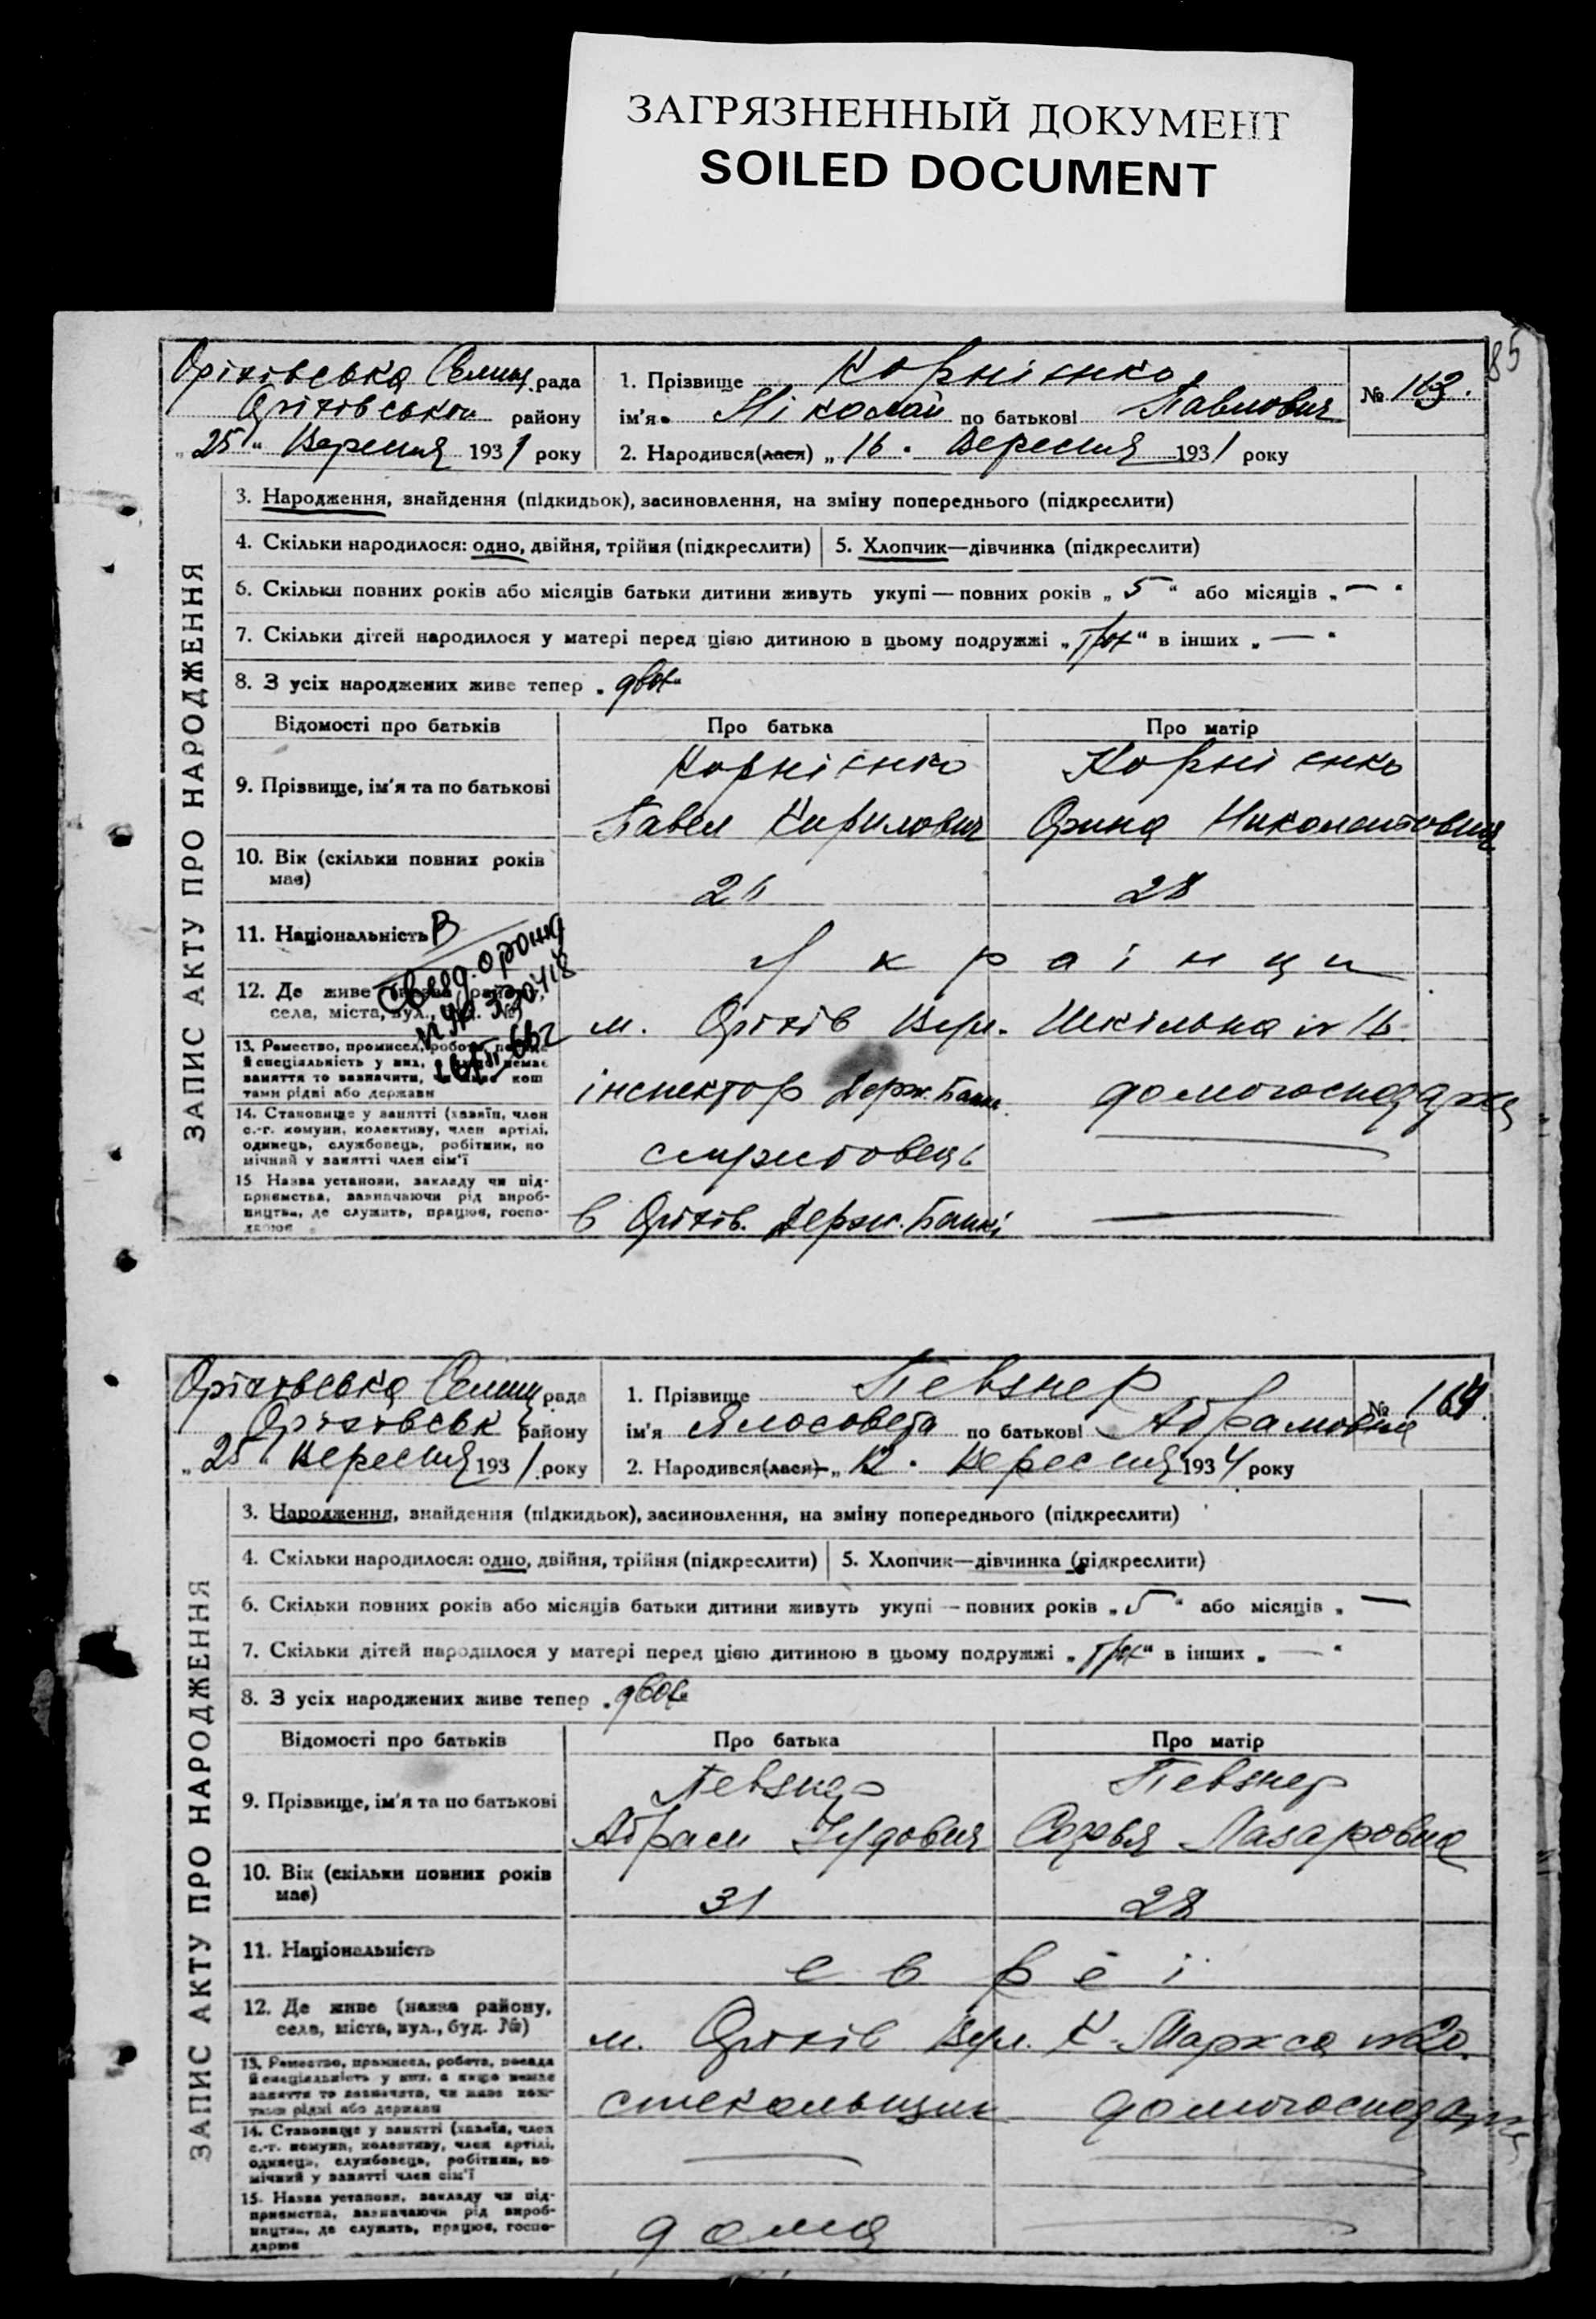 ЗАГРЯЗНЕННЫЙ ДОКУМЕНТ
SOILED DOCUMENT
85
ЗАПИС АКТУ ПРО НАРОДЖЕННЯ
Оріхівська Селищ. рада
Оріхівськ району
„25“ Вересня 1931 року
1. Прізвище Корнієнко
ім'я Ніколай по батькові Павлович
№ 163.
2. Народився(лася) „16. Вересня 1931 року
3. Народження, знайдення (підкидьок), засиновлення, на зміну попереднього (підкреслити)
4. Скільки народилося: одно, двійня, трійня (підкреслити) 5. Хлопчик—дівчинка (підкреслити)
6. Скільки повних років або місяців батьки дитини живуть укупі — повних років „5“ або місяців „—“
7. Скільки дітей народилося у матері перед цією дитиною в цьому подружжі „трох“ в інших „—“
8. З усіх народжених живе тепер „двох“
Відомості про батьків Про батька Про матір
9. Прізвище, ім'я та по батькові
Корнієнко Корнієнко
Павел Кирилович Орина
10. Вік (скільки повних років має)
26 28
11. Національність
Українци
12. Де живе (назва району, села, міста, вул., буд. №)
м. Оріхів Вул. Шкільна № 16
13. Ремество, промисел, робота, посада й спеціяльність у них, а якщо немає заняття то зазначити, чи живе кош тами рідні або держави
інспектор Держ. Банк. домогосподарка
14. Становище у занятті (хазяїн, член с.-г. комуни, колективу, член артілі, одинець, службовець, робітник, по мічний у занятті член сім'ї
15 Назва установи, закладу чи під-приємства, зазначаючи рід вироб-ництва, де служить, працює, госпо-дарює
в Оріхів. Держ. Банкі
ЗАПИС АКТУ ПРО НАРОДЖЕННЯ
Оріхівська Селищ рада
Оріхівськ району
„25“ Вересня 1931 року
1. Прізвище Певзнер
ім'я Ялосовета по батькові Абрамовна
№ 164.
2. Народився(лася) „12. Вересня 1931 року
3. Народження, знайдення (підкидьок), засиновлення, на зміну попереднього (підкреслити)
4. Скільки народилося: одно, двійня, трійня (підкреслити) 5. Хлопчик—дівчинка (підкреслити)
6. Скільки повних років або місяців батьки дитини живуть укупі — повних років „5“ або місяців „—
7. Скільки дітей народилося у матері перед цією дитиною в цьому подружжі „трох“ в інших „—“
8. З усіх народжених живе тепер „двох“
Відомості про батьків Про батька Про матір
9. Прізвище, ім'я та по батькові
Певзнер Певзнер
Абрам Іудович Софья Лазаровна
10. Вік (скільки повних років має)
31 28
11. Національність
евреі
12. Де живе (назва району, села, міста, вул., буд. №)
м. Оріхів Вул. К-Маркса № 20.
13. Ремество, промисел, робота, посада й спеціяльність у них, а якщо немає заняття то зазначити, чи живе кош-тами рідні або держави
стекольщик домогосподарка
14. Становище у занятті (хазяїн, член с.-г. комуни, колективу, член артілі, одинець, службовець, робітник, по-мічний у занятті член сім'ї
15. Назва установи, закладу чи під-приємства, зазначаючи рід вироб-ництва, де служить, працює, госпо-дарює
дома